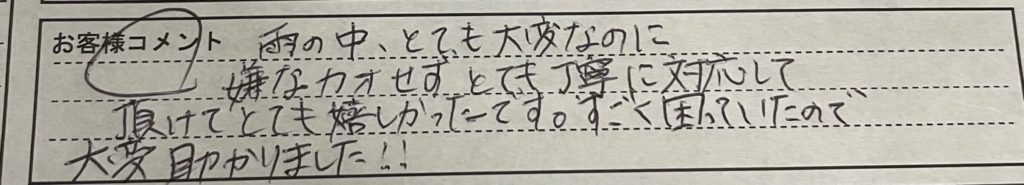 お客様コメント 雨の中、とても大変なのに
嫌なカオせず とても丁寧に対応して
頂けてとても嬉しかったです。すごく困っていたので
大変助かりました!!